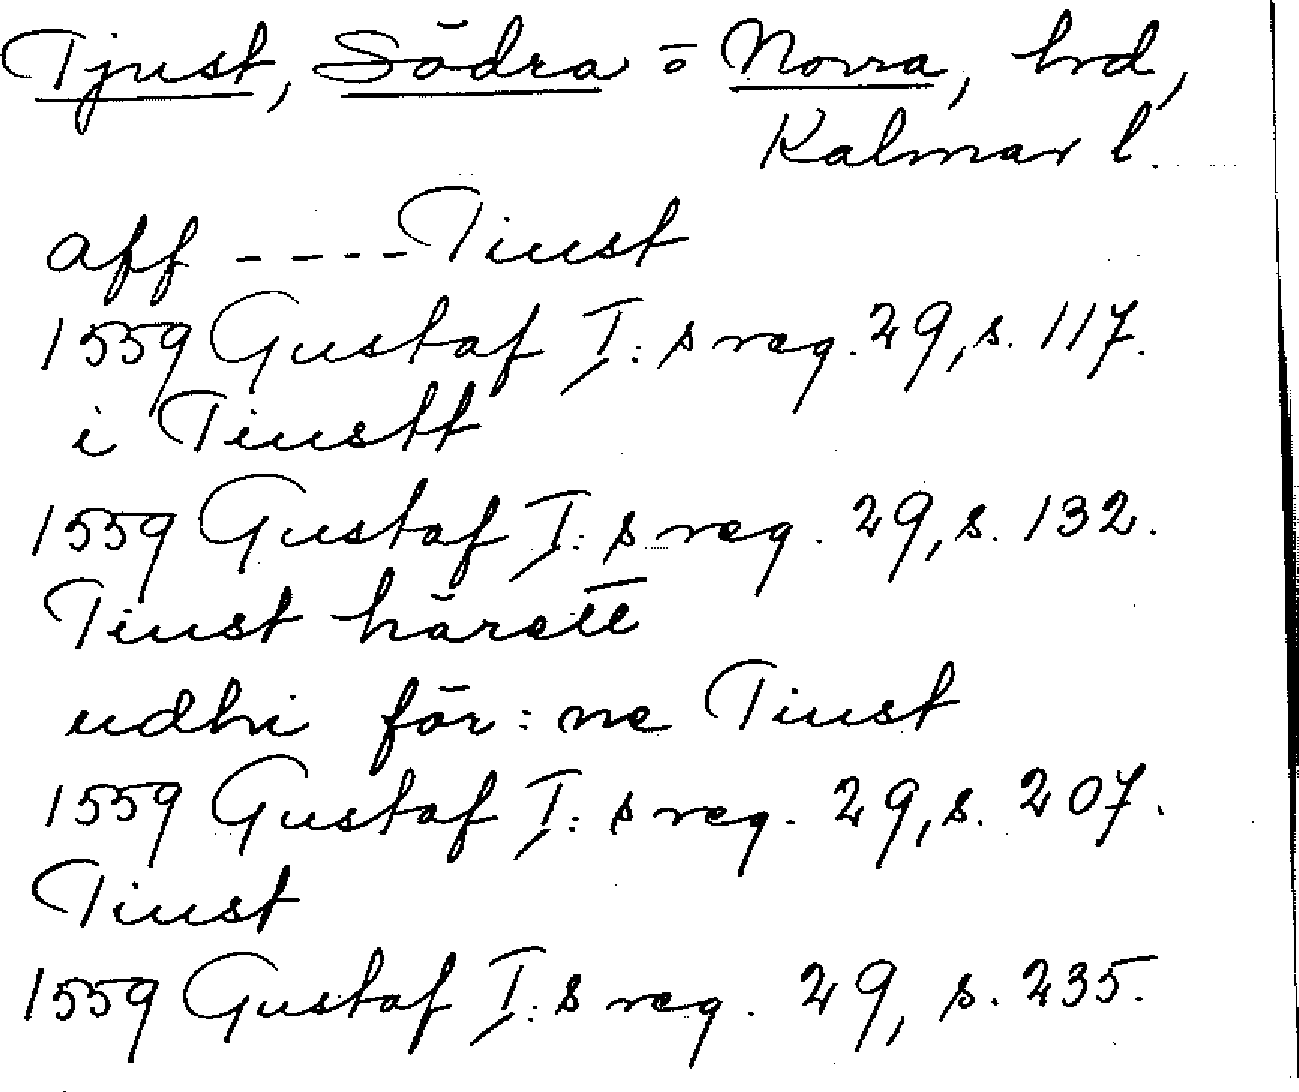 Tjust, Södra o Norra, hrd,
Kalmar l.
aff ---- Tiust
1559 Gustaf I:s reg. 29, s. 117.
i Tiustt
1559 Gustaf I:s reg. 29, s. 132.
Tiust härett
udhi för:ne Tiust
1559 Gustaf I:s reg. 29, s. 207.
Tiust
1559 Gustaf I:s reg. 29, s. 235.